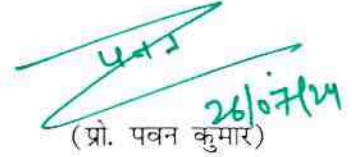 पवन
26/07/24
(प्रो. पवन कुमार)